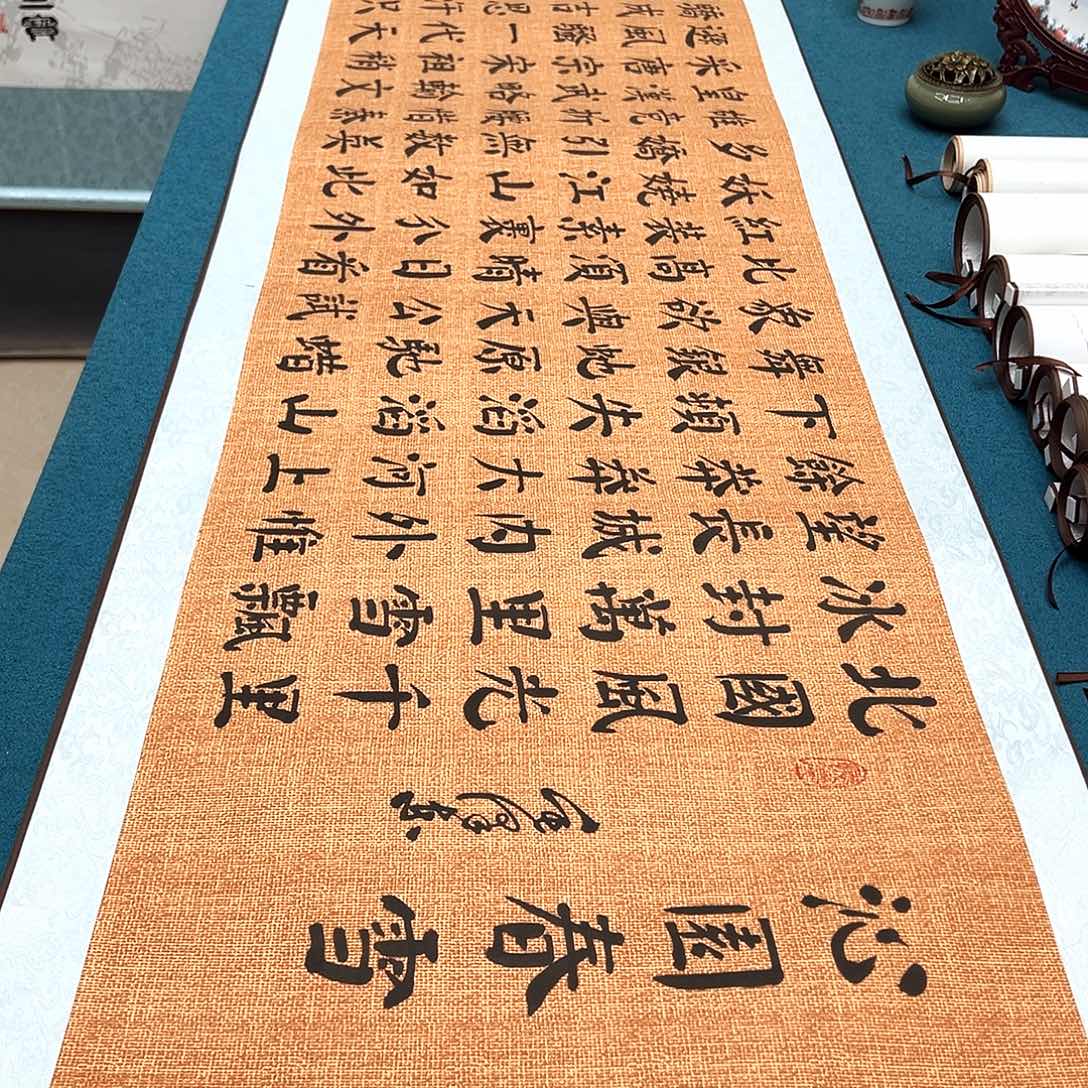 沁園春雪
北國風光千里
冰封萬里雪飄
望長城內外惟
餘莽莽大河上
下頓失滔滔山
舞銀虵原馳蜡
象欲與天公試
比高須晴日看
紅裝素裹分外
妖嬈江山如此
多嬌引無數英
雄競折腰惜秦
皇漢武略輸文
采唐宗宋祖稍
遜風騷一代天
驕成吉思汗只